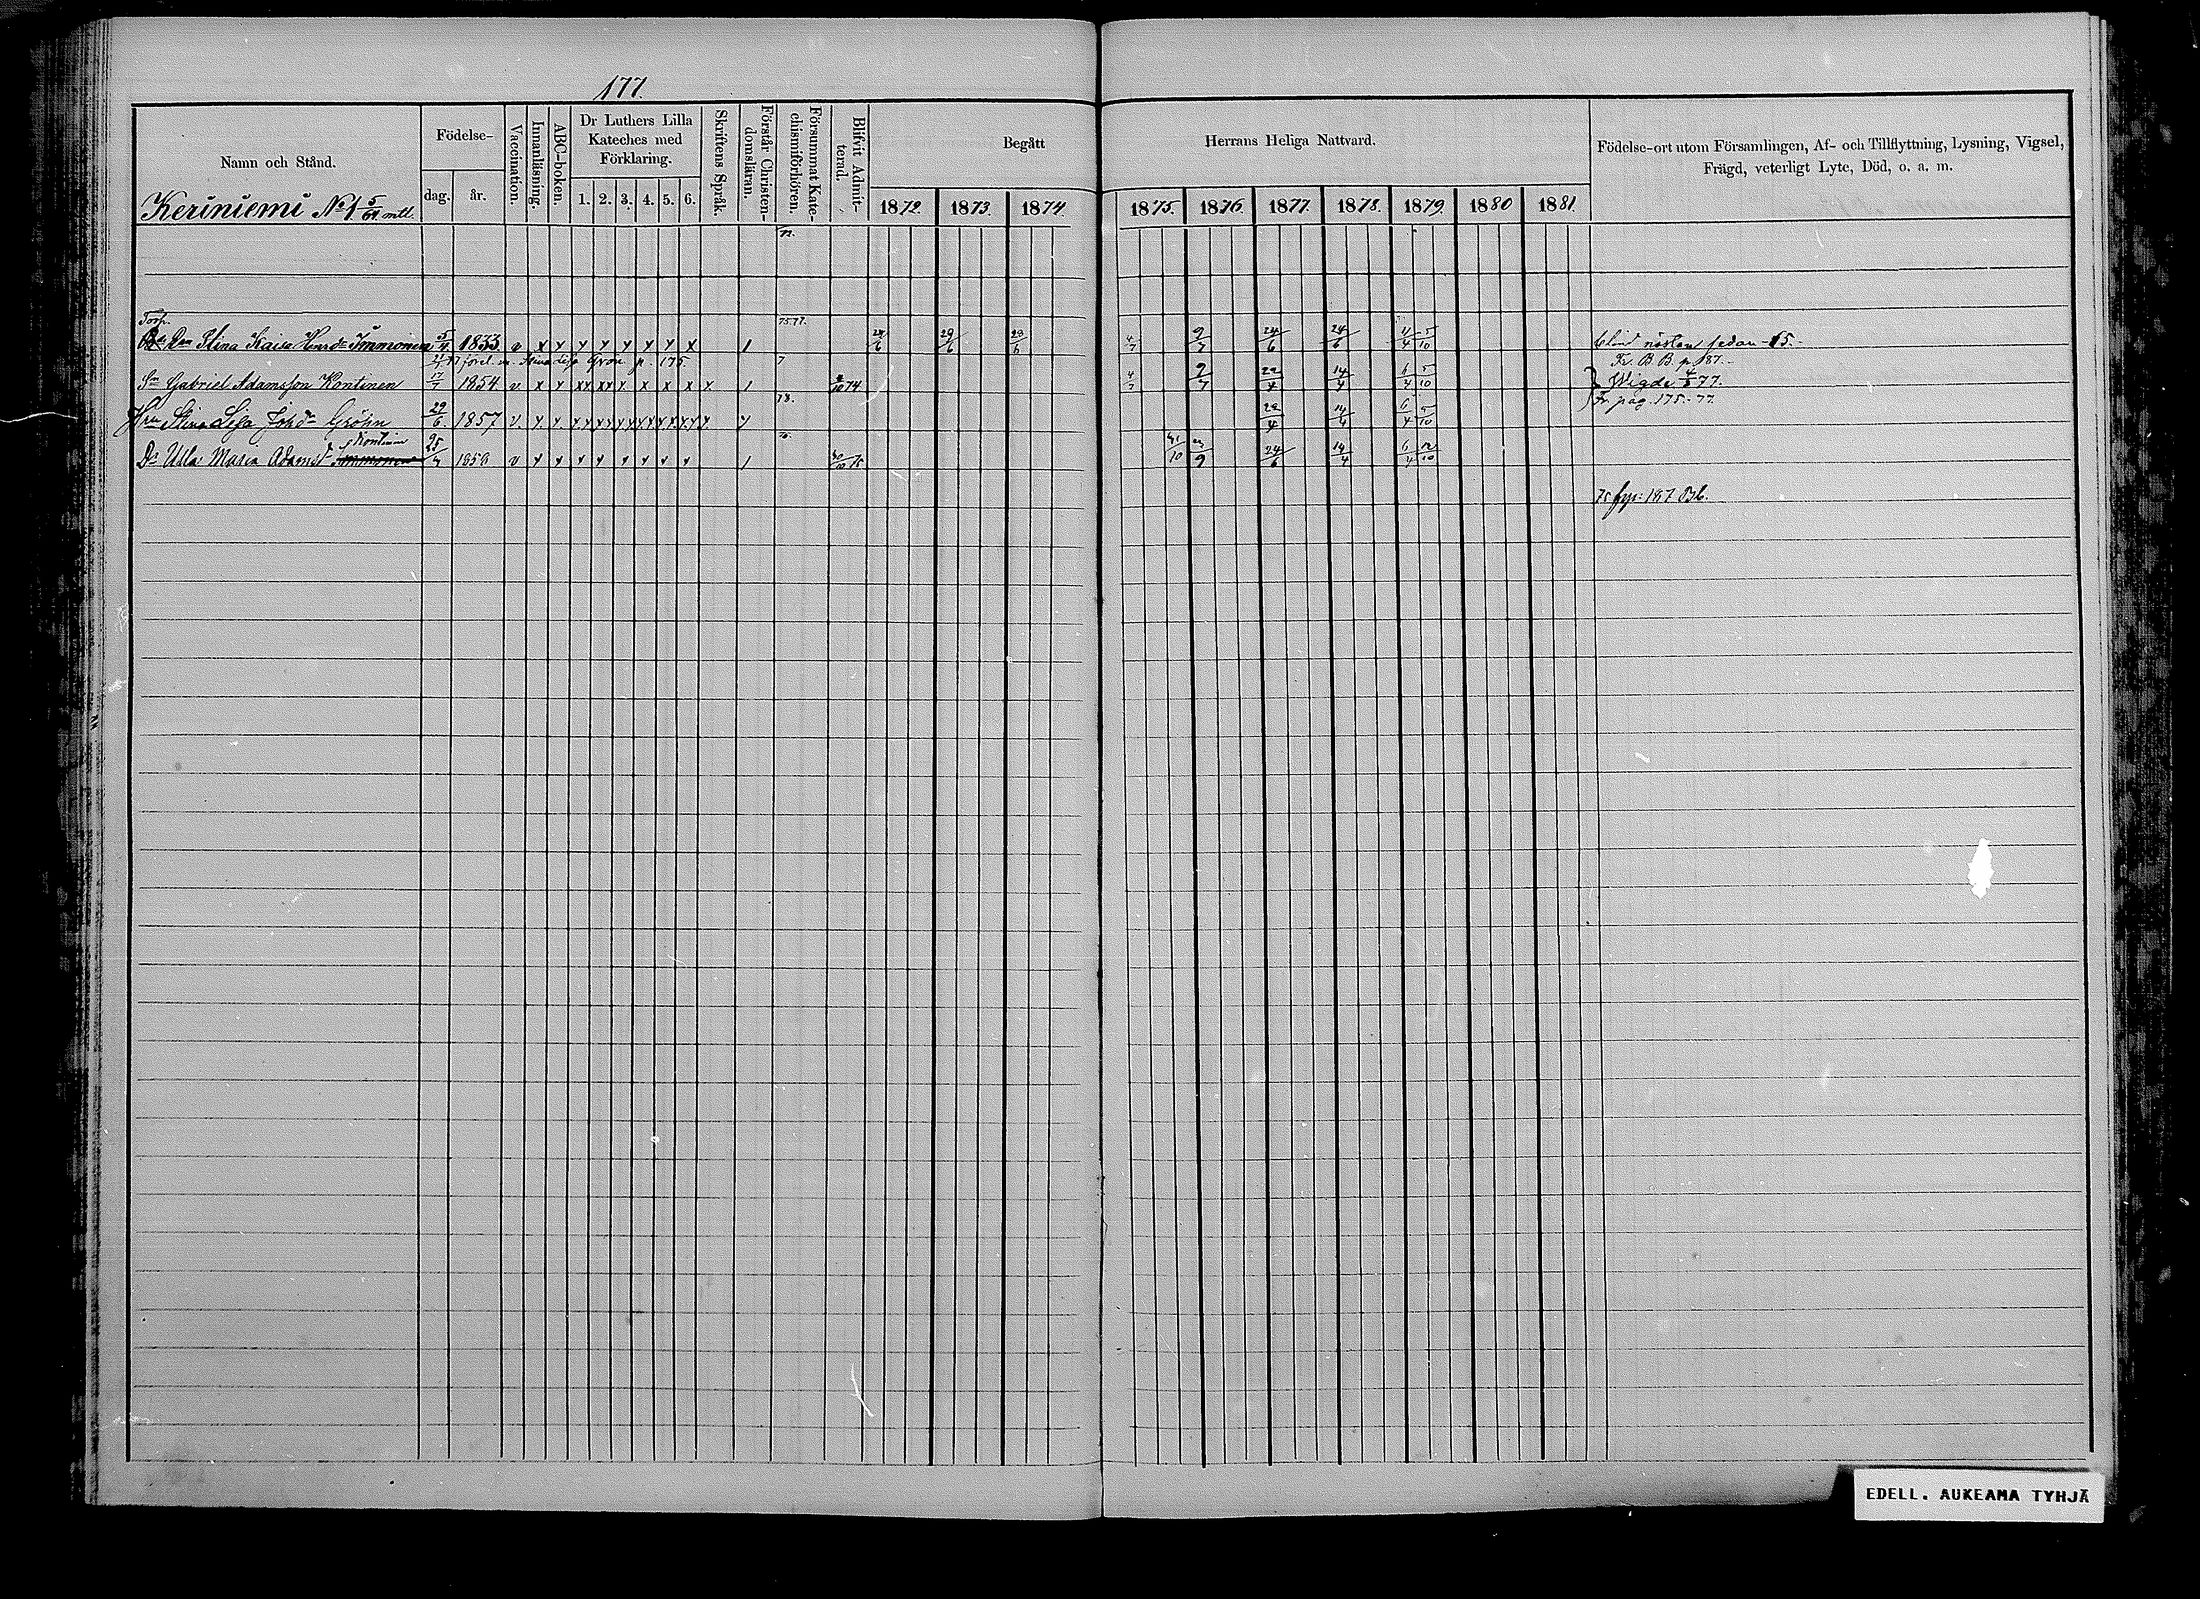 177.
Namn och Stånd.
Födelse-
dag.
år.
Vaccination.
Innanläsning.
ABC-boken.
Dr Luthers Lilla
Kateches med
Förklaring.
1. 2. 3. 4. 5. 6.
Skriftens Språk.
Förstår Christen-
domsläran.
Försummat Kate-
chismiförhören.
Blifvit Admit-
terad.
Begått
Herrans Heliga Nattvard.
1872. 1873. 1874.
1875. 1876. 1877. 1878. 1879. 1880 1881.
Födelse-ort utom Församlingen, Af- och Tillflyttning, Lysning, Vigsel,
Frägd, veterligt Lyte, Död, o. a. m.
Keriniemi No 1 5/64 mtl.
72.
Torp.
75.77.
Stina Kaisa Hend:r Immonen 5/4 1833 v x y y y y y y x 1 29/6 29/6 29/6 4/7 9/7 24/6 24/6 11/4 5/10 blind nästan sedan
p. 175. 7 Fr. B B. p. 187.
Sn Gabriel Adamsson Kontinen 17/7 1854 v. x y xx xy y x x x y 1 74 4/7 9/7 22/4 14/4 6/4 5/10 Wigde 4/3 77.
78. Fr. pag. 175-77.
Hru Stina Lisa Johdr Gröhn 29/6 1857 v. 22/4 14/4 6/4 5/10
Kontinen
Dr Ulla Maria Adamsdr Immonen 25/4 1859 v y y y y y y y y 1 75 24/6 14/4 6/4 12/10
75 187 Bb.
EDELL. AUKEAMA TYHJÄ